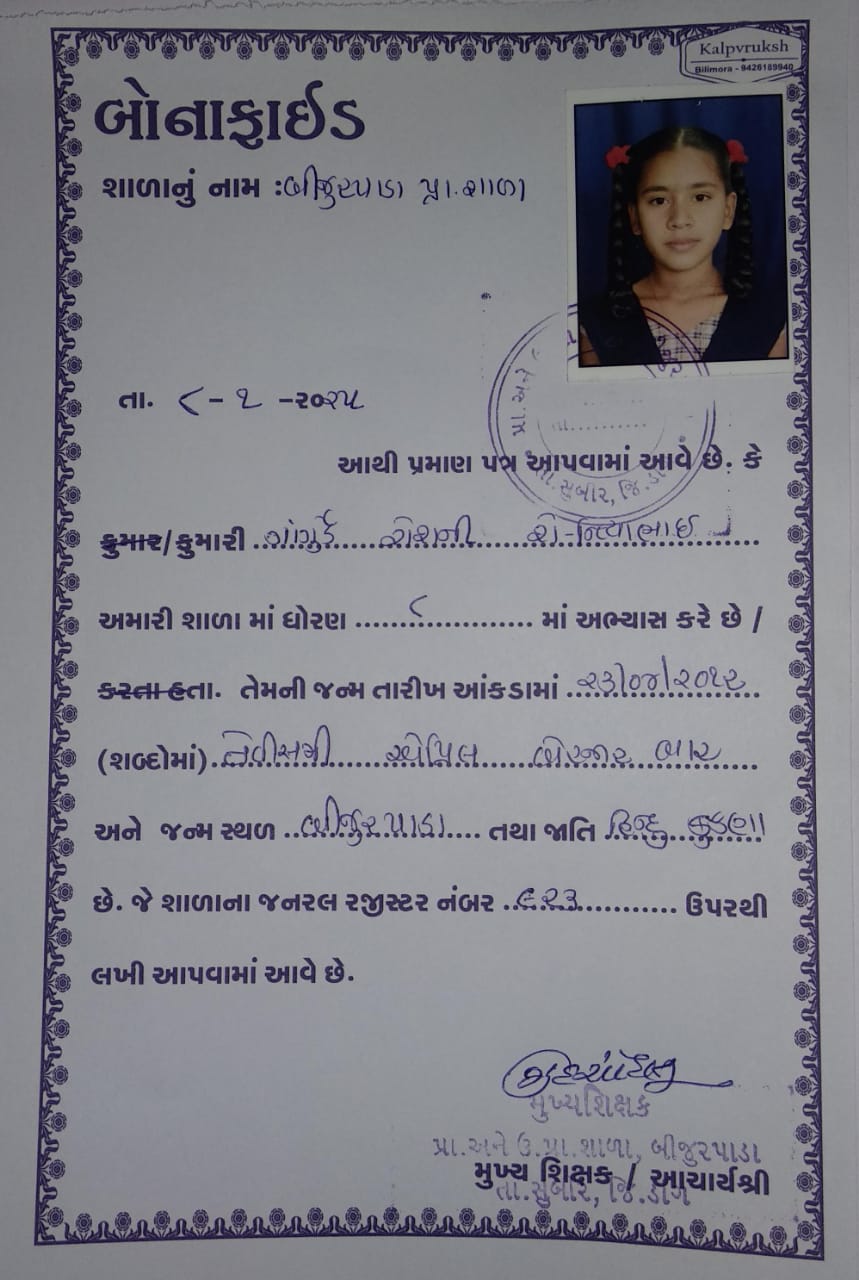 Kalpvruksh
Bilimora - 9426189940
બોનાફાઈડ
શાળાનું નામ : બીજુરપાડા પ્રા.શાળા
તા. ૮-૧-૨૦૨૫
પ્રા.અને
તા.સુબીર, જિ.ડાં
આથી પ્રમાણ પત્ર આપવામાં આવે છે. કે
કુમાર/કુમારી ગાંગુર્ડે રોશની
અમારી શાળા માં ધોરણ ....૮.... માં અભ્યાસ કરે છે /
કરતા હતા. તેમની જન્મ તારીખ આંકડામાં ૨૩/૦૪/૨૦૧૨
(શબ્દોમાં) ત્રેવીસમી એપ્રિલ બે હજાર બાર
અને જન્મ સ્થળ ..બીજુરપાડા.... તથા જાતિ હિન્દુ કુકણા
છે. જે શાળાના જનરલ રજીસ્ટર નંબર ..૬૨૩............ ઉપરથી
લખી આપવામાં આવે છે.
મુખ્યશિક્ષક
પ્રા.અને ઉ.પ્રા.શાળા, બીજુરપાડા
મુખ્ય શિક્ષક / આચાર્યશ્રી
તા.સુબીર, જિ.ડાંગ